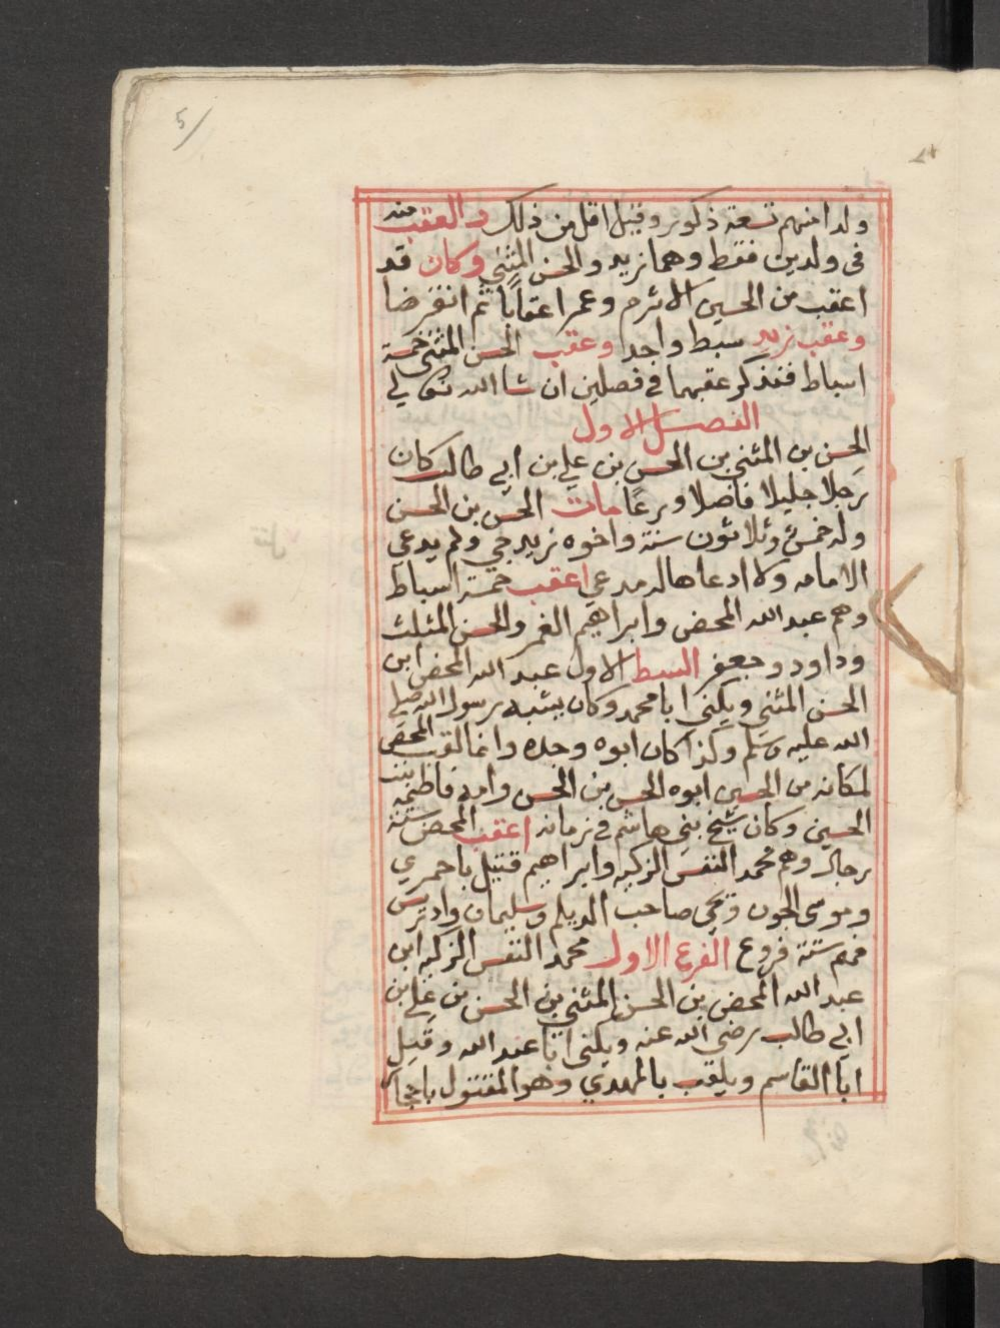 5
ولدا منهم تسعة ذكور وقيل اقل من ذلك والعقب منه
فى ولدين فقط وهما زيد والحسن المثنى وكان قد
اعقب من الحسين الاثرم وعمر اعقابا ثم انقرضا
وعقب زيد سبط واحد وعقب الحسن المثنى خمسة
اسباط فنذكر عقبهما في فصلين ان شا الله تعالي
الفصل الاول
الحسن بن المثنى بن الحسن بن علي بن ابي طالب كان
رجلا جليلا فاضلا ورعا مات الحسن بن الحسن
وله خمس وثلاثون سنة واخوه زيد حي ولم يدعي
الامامه ولا ادعاها له مدعي اعقب خمسة اسباط
وهم عبد الله المحض وابراهيم الغمر والحسن المثلث
وداود وجعفر السبط الاول عبد الله المحض ابن
الحسن المثنى ويكنى ابا محمد وكان يشبه برسول الله صلى
الله عليه وسلم وكذا كان ابوه وجده وانما لقب المحض
لمكانه من الحسين ابوه الحسن بن الحسن وامه فاطمة بنت
الحسين وكان شيخ بني هاشم في زمانه اعقب المحض ستة
رجال وهم محمد النفس الزكيه وابراهيم قتيل باحمرى
وموسى الجون ويحيى صاحب الديلم وسليمان وادريس
فهم ستة فروع الفرع الاول محمد النفس الزكيه ابن
عبد الله المحض بن الحسن المثنى بن الحسن بن علي بن
ابي طالب رضي الله عنه ويكنى ابا عبد الله وقيل
ابا القاسم ويلقب بالمهدي وهو المقتول باحجار